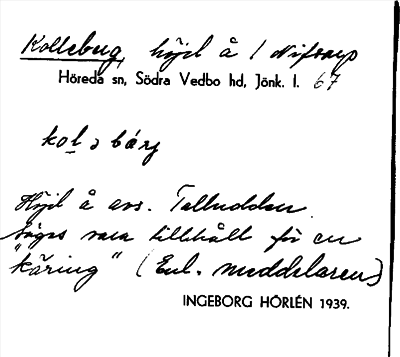 Kolleberg, höjd å 1 Nifsarp
Höreda sn, Södra Vedbo hd, Jönk. l. 67
kolɔbárj
Höjd å avs. Talludden.
Säges vara tillhåll för en
"käring" (Enl. meddelaren)
INGEBORG HÖRLÉN 1939.